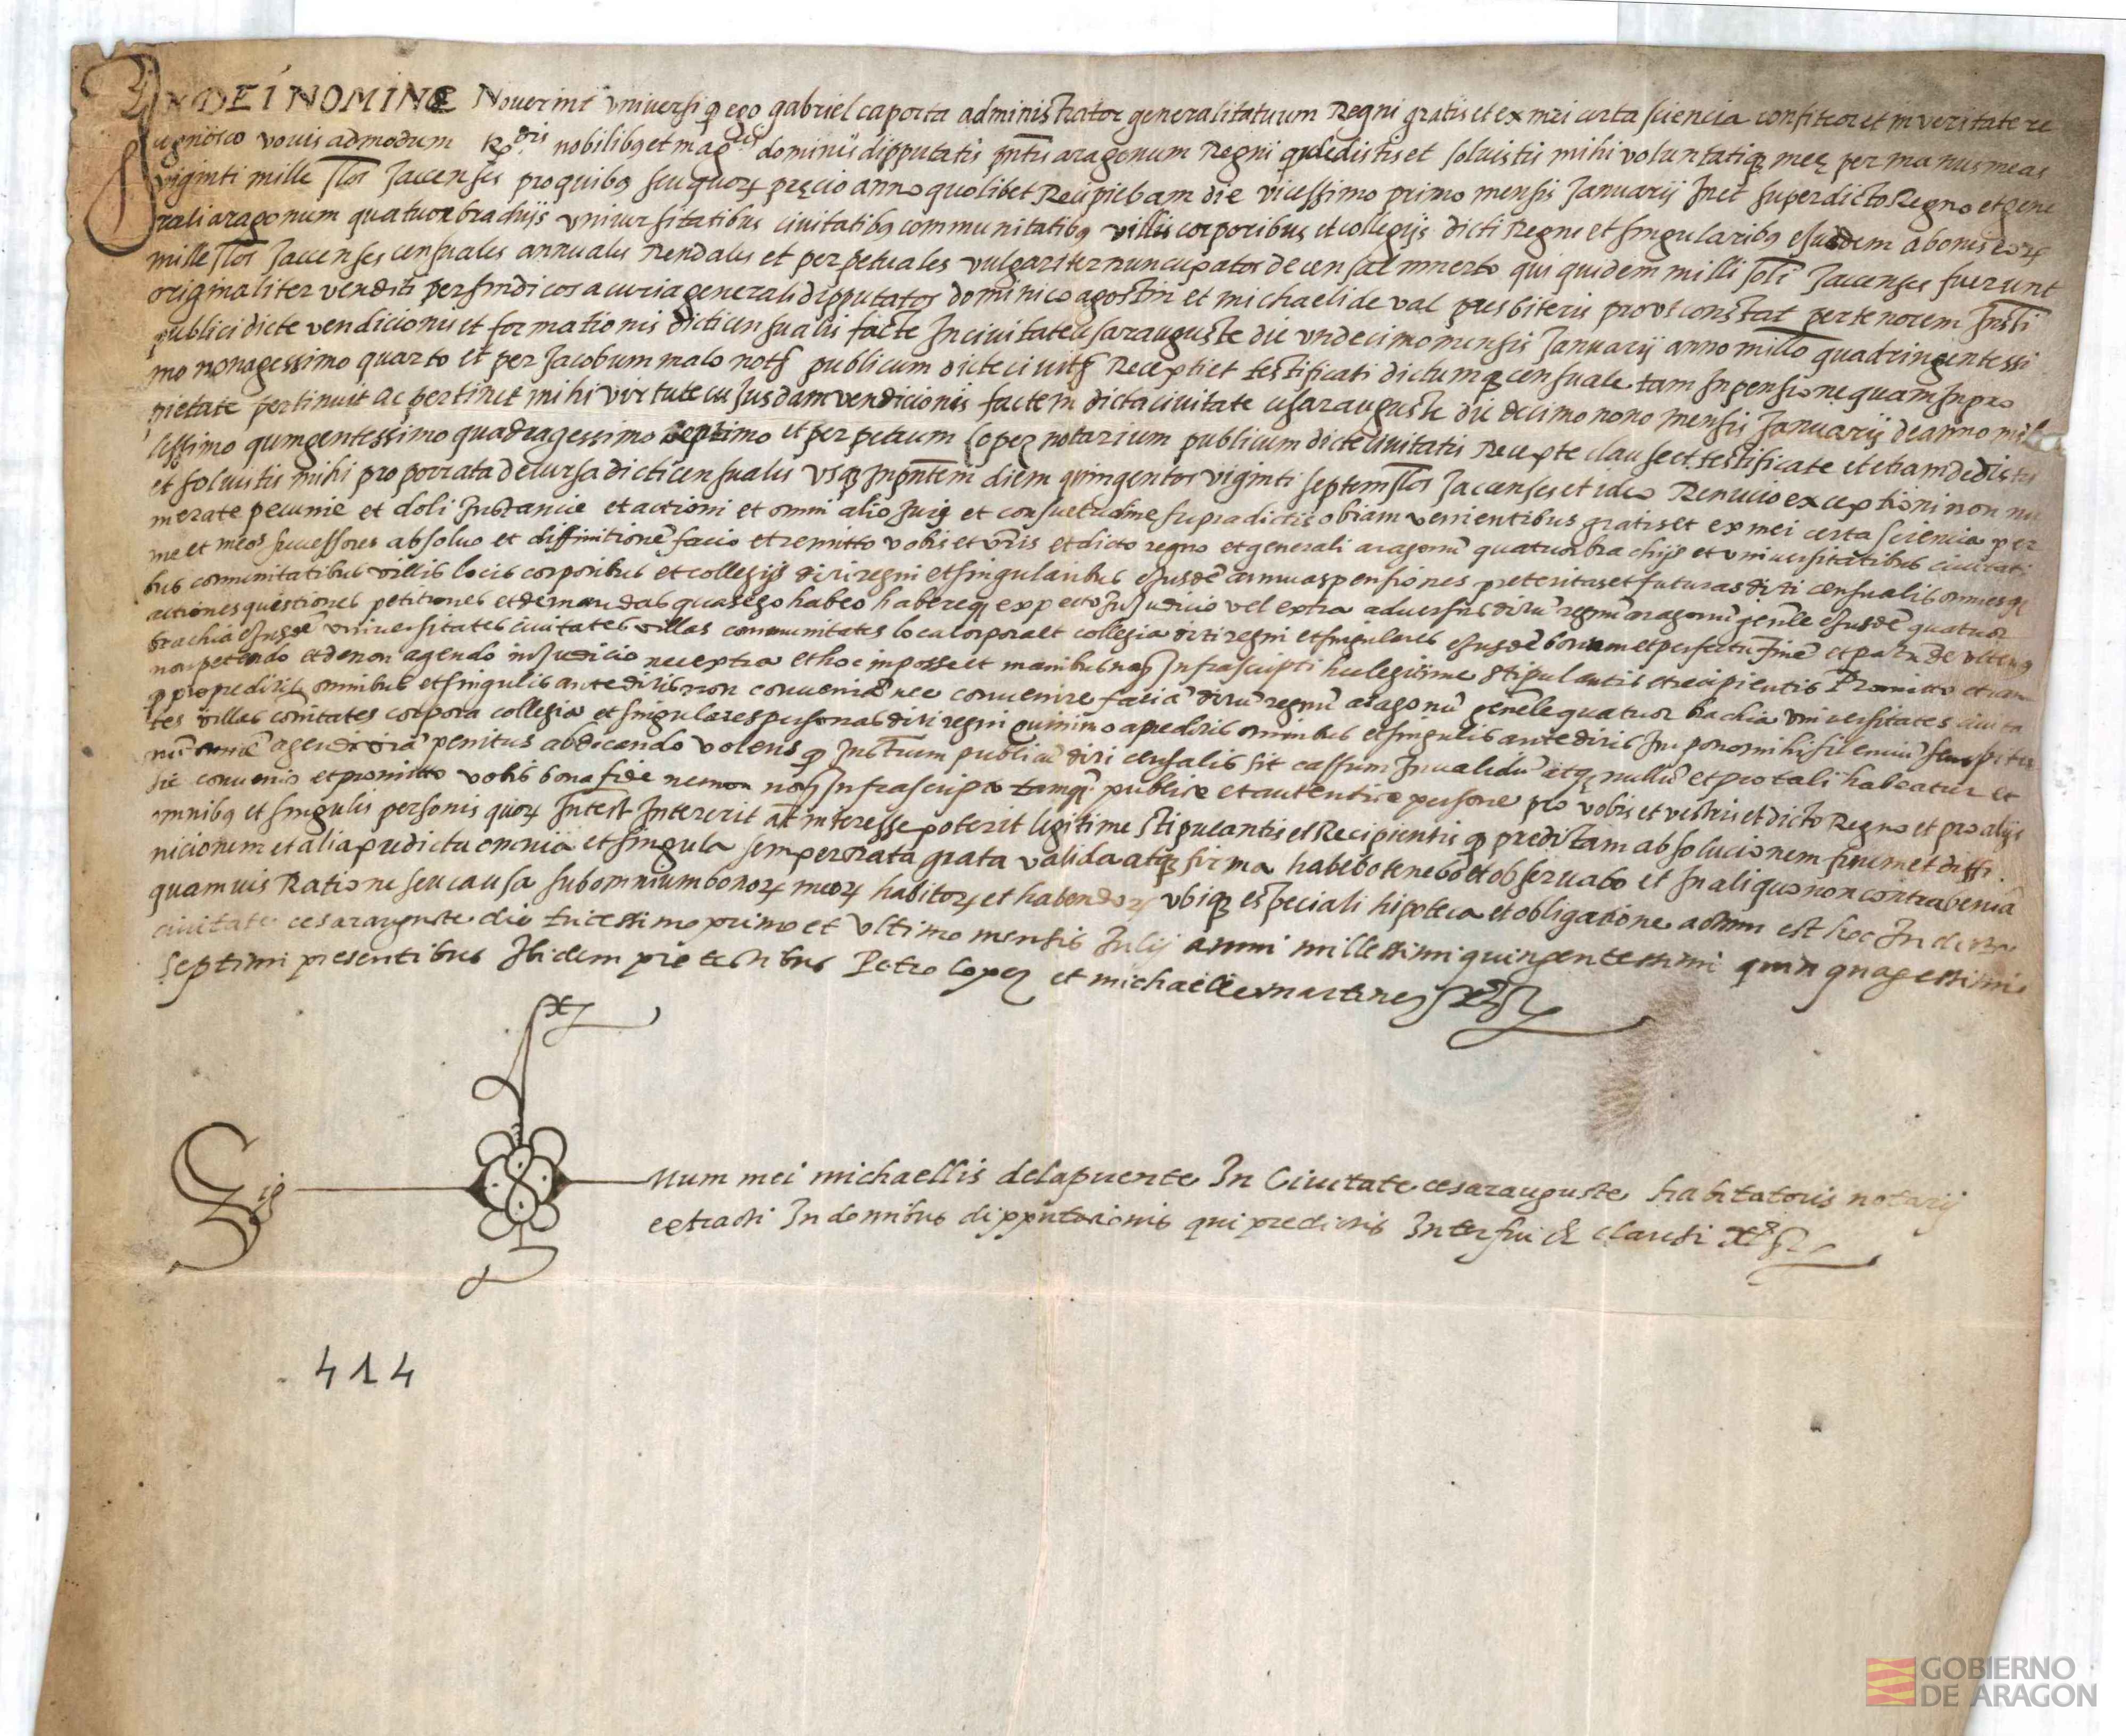 IN DEI NOMINE Nouerint vniuersi q ego gabriel caporta administrator generalitatuum Regni gratis et ex mei certa sciencia confiteor et in veritate re
cugnosco vouis admodum R.dis nobilibq et magcis dominis dipputatis pntis aragonum Regni q dedistis et soluistis mihi voluntatiq meę per manus meas
viginti mille slos Jaccenses pro quibq seu quorꝝ pręcio anno quolibet Recipiebam die vicessimo primo mensis Januarij In et super dicto Regno et gene
rali aragonum quatuor brachijs vniuersitatibus ciuitatibq communitatibq villis corporibus et collegijs dicti Regni et singularibq ejusdem ab omis eorꝝ
mille slos Jaccenses censuales annuales Rendales et perpetuales vulgariter nuncupatos de censal muerto qui quidem milli soli Jaccenses fuerunt
originaliter venditi per sindicos a curia generali dipputatos dominico agostin et michaeli de val presbiteris prout constat per tenorem Insti
publici dicte vendicionis et formationis dicti censualis facte In ciuitate cesarauguste die vndecimo mensis Januarij anno millo quadringentessi
mo nonagessimo quarto et per Jacobum malo notʒ publicum dicte ciuitʒ Recepti et testificati dictumq censuale tam In pensione quam In pro
pietate pertinuit ac pertinet mihi virtute cujusdam vendicionis facte in dicta ciuitate cesarauguste die decimo nono mensis Januarij de anno mil
lessimo quingentessimo quadragessimo septimo et per petrum lopez notarium publicum dicte ciuitatis Recepte clause et testificate et etiam dedistis
et soluistis mihi pro porrata decursa dicti censualis vsq In pntem diem quingentos viginti septem slos Jaccenses et ideo Renucio exceptioni non nu
merate pecunie et doli Instancie et actioni et omni alio Juri et consuetudine supradictis obiam venientibus gratis et ex mei certa sciencia per
me et meos successores absoluo et diffinitionē facio et remitto vobis et vris et dicto regno et generali aragonū quatuor brachijs et vniuersitatibus ciuitati
bus comunitatibus villis locis corporibus et collegijs dicti regni et singularibus ejusdē annuas pensiones preteritas et futuras dicti censualis omnesq
actiones questiones petitiones et demandas quas ego habeo habereq expecto In Judicio vel extra aduersus dictū regnū aragonū genlle ejusdē quatuor
brachia ejusdē vniuersitates ciuitates villas comunitates loca corpora et collegia dicti regni et singulares ejusdē bonum et perfectū finē et pactū de vlterius
non petendo et de non agendo in Judicio nec extra et hoc in posse et manibus notʒ Infrascripti hec legitime stipulantis et recipientis Promitto etiam
q pro predictis omnibus et singulis antedictis non conueniā nec conuenire faciā dictū regnū aragonū genēle quatuor brachia vniuersitates ciuita
tes villas comitates corpora collegia et singulares personas dicti regni quinimo a predictis omnibus et singulis antedictis Inponomihi silenciū sempiter
nū omnē agendi viā penitus abdicando volens q Instrum publicū dicti censalis sit cassum Inualidū atq nullū et pro tali habeatur et
sic conuenio et promitto vobis bona fide necnon notʒ Infrascripto tamq publice et autentice persone pro vobis et vestris et dicto Regno et pro alijs
omnibq et singulis personis quorꝝ Intest Intererit aut interesse poterit legitime stipulantis et Recipientis q predictam absolucionem finem et diffi
nicionem et alia predicta omnia et singula semper rata grata valida atq firma habebo tenebo et obseruabo et In aliquo non contraueniā
quamuis Ratione seu causa sub omnium bonorꝝ meorꝝ habitorꝝ et habendorꝝ vbiq especiali hipoteca et obligatione actum est hoc In dicta
ciuitate cesarauguste die tricessimo primo et vltimo mensis Julij anni millessimi quingentessimi quinquagessimi
septimi presentibus Ibidem pro testibus Petro lopez et michaele martinez
Sig num mei michaellis delapuente In Ciuitate cesarauguste habitatoris notarij
extracti In domibus dipputacionis qui predictis Interfui & clausi
414
GOBIERNO
DE ARAGON